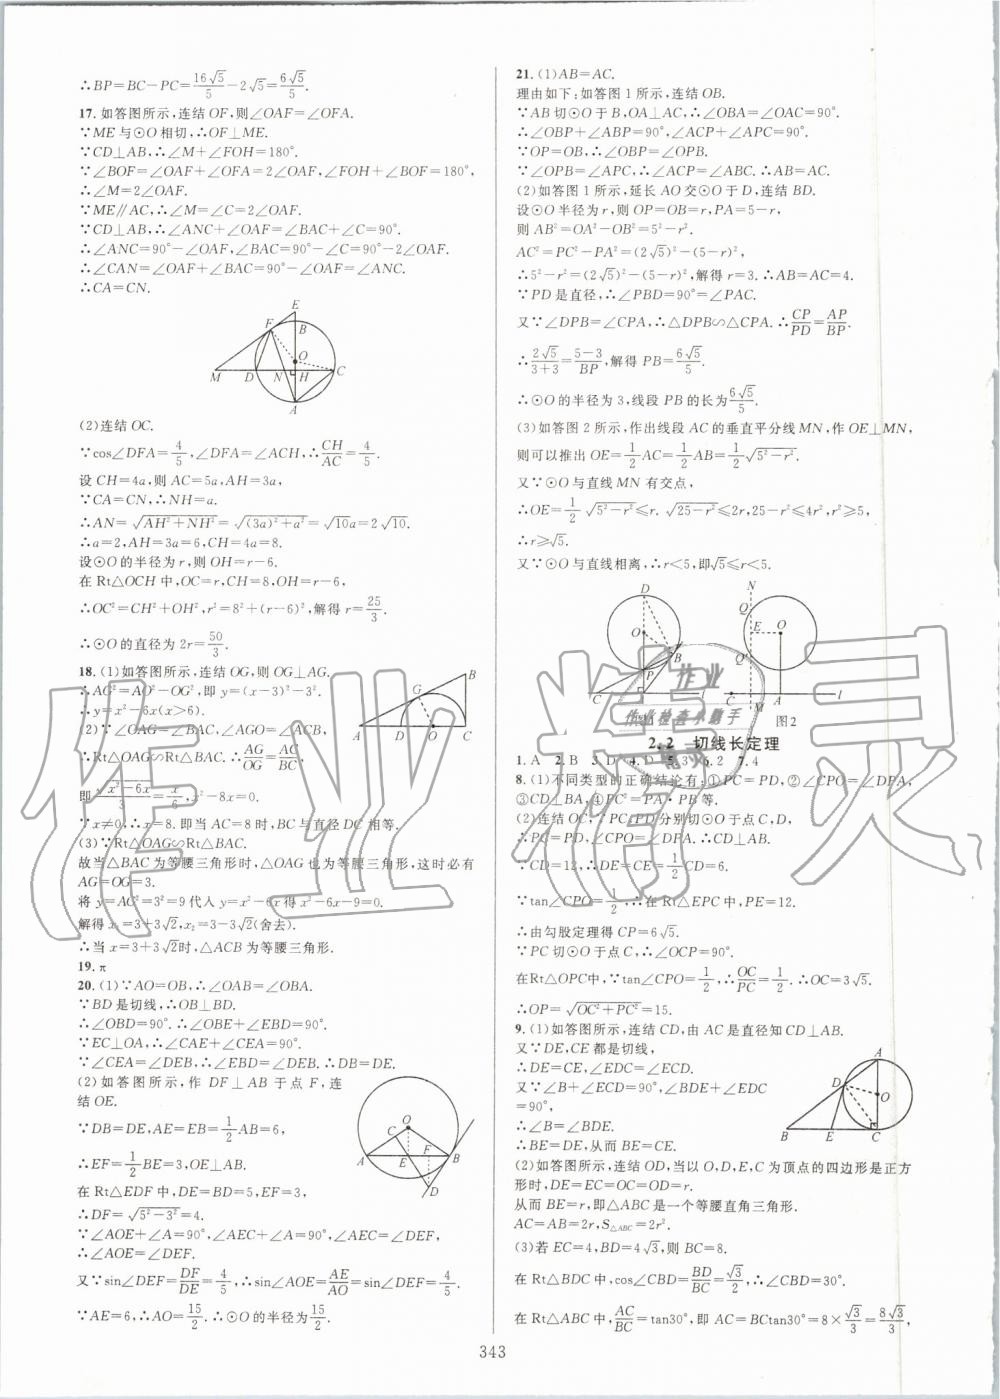 ∴BP=BC-PC=16√5/5-2√5=6√5/5.
17. 如答图所示,连结 OF,则∠OAF=∠OFA.
∵ME 与⊙O 相切,∴OF⊥ME.
∵CD⊥AB,∴∠M+∠FOH=180°.
∵∠BOF=∠OAF+∠OFA=2∠OAF,∠FOH+∠BOF=180°,
∴∠M=2∠OAF.
∵ME∥AC,∴∠M=∠C=2∠OAF.
∵CD⊥AB,∴∠ANC+∠OAF=∠BAC+∠C=90°.
∴∠ANC=90°-∠OAF,∠BAC=90°-∠C=90°-2∠OAF.
∴∠CAN=∠OAF+∠BAC=90°-∠OAF=∠ANC.
∴CA=CN.
E
F
B
O
M
D
N
H
C
A
(2)连结 OC.
∵cos∠DFA=4/5,∠DFA=∠ACH,∴CH/AC=4/5.
设 CH=4a,则 AC=5a,AH=3a,
∵CA=CN,∴NH=a.
∴AN=√(AH²+NH²)=√((3a)²+a²)=√10a=2√10.
∴a=2,AH=3a=6,CH=4a=8.
设⊙O 的半径为 r,则 OH=r-6.
在 Rt△OCH 中,OC=r,CH=8,OH=r-6,
∴OC²=CH²+OH²,r²=8²+(r-6)²,解得 r=25/3.
∴⊙O 的直径为 2r=50/3.
18. (1)如答图所示,连结 OG,则 OG⊥AG.
∴AG²=AO²-OG²,即 y=(x-3)²-3².
∴y=x²-6x(x>6).
(2)∵∠OAG=∠BAC,∠AGO=∠ACB,
∴Rt△OAG∽Rt△BAC.∴AG/AC=OG/BC.
即√(x²-6x)/x=3/6,x²-8x=0.
∵x≠0,∴x=8. 即当 AC=8 时,BC 与直径 DC 相等.
(3)∵Rt△OAG∽Rt△BAC.
故当△BAC 为等腰三角形时,△OAG 也为等腰三角形,这时必有
AG=OG=3.
将 y=AG²=3²=9 代入 y=x²-6x 得 x²-6x-9=0.
解得 x₁=3+3√2,x₂=3-3√2(舍去).
∴当 x=3+3√2时,△ACB 为等腰三角形.
B
G
A
D
O
C
19. π
20. (1)∵AO=OB,∴∠OAB=∠OBA.
∵BD 是切线,∴OB⊥BD.
∴∠OBD=90°.∴∠OBE+∠EBD=90°.
∵EC⊥OA,∴∠CAE+∠CEA=90°.
∵∠CEA=∠DEB,∴∠EBD=∠DEB.∴DB=DE.
(2)如答图所示,作 DF⊥AB 于点 F,连
结 OE.
∵DB=DE,AE=EB=1/2AB=6,
∴EF=1/2BE=3,OE⊥AB.
在 Rt△EDF 中,DE=BD=5,EF=3,
∴DF=√(5²-3²)=4.
∵∠AOE+∠A=90°,∠AEC+∠A=90°,∠AEC=∠DEF,
∴∠AOE=∠DEF.
又∵sin∠DEF=DF/DE=4/5,∴sin∠AOE=AE/AO=sin∠DEF=4/5.
∵AE=6,∴AO=15/2.∴⊙O 的半径为15/2.
O
C
A
E
F
B
D
21. (1)AB=AC.
理由如下:如答图 1 所示,连结 OB.
∵AB 切⊙O 于 B,OA⊥AC,∴∠OBA=∠OAC=90°.
∴∠OBP+∠ABP=90°,∠ACP+∠APC=90°.
∵OP=OB,∴∠OBP=∠OPB.
∵∠OPB=∠APC,∴∠ACP=∠ABC.∴AB=AC.
(2)如答图 1 所示,延长 AO 交⊙O 于 D,连结 BD.
设⊙O 半径为 r,则 OP=OB=r,PA=5-r,
则 AB²=OA²-OB²=5²-r²,
AC²=PC²-PA²=(2√5)²-(5-r)²,
∴5²-r²=(2√5)²-(5-r)²,解得 r=3.∴AB=AC=4.
∵PD 是直径,∴∠PBD=90°=∠PAC.
又∵∠DPB=∠CPA,∴△DPB∽△CPA.∴CP/PD=AP/BP.
∴2√5/(3+3)=(5-3)/BP,解得 PB=6√5/5.
∴⊙O 的半径为 3,线段 PB 的长为6√5/5.
(3)如答图 2 所示,作出线段 AC 的垂直平分线 MN,作 OE⊥MN,
则可以推出 OE=1/2AC=1/2AB=1/2√(5²-r²).
又∵⊙O 与直线 MN 有交点,
∴OE=1/2√(5²-r²)≤r.√(25-r²)≤2r,25-r²≤4r²,r²≥5.
∴r≥√5.
又∵⊙O 与直线相离,∴r<5,即√5≤r<5.
D
O
B
P
C
l
N
Q
E
O
Q'
C
M
A
l
图2
2.2 切线长定理
1. A 2. B 3. D 4. D 5. 3 6. 2 7. 4
8. (1)不同类型的正确结论有:①PC=PD,②∠CPO=∠DPA,
③CD⊥BA,④PC²=PA·PB 等.
(2)连结 OC,∵PC、PD 分别切⊙O 于点 C,D,
∴PC=PD,∠CPO=∠DPA.∴CD⊥AB.
∵CD=12,∴DE=CE=1/2CD=6.
∵tan∠CPO=1/2,∴在 Rt△EPC 中,PE=12.
∴由勾股定理得 CP=6√5.
∵PC 切⊙O 于点 C,∴∠OCP=90°.
在Rt△OPC中,∵tan∠CPO=1/2,∴OC/PC=1/2.∴OC=3√5.
∴OP=√(OC²+PC²)=15.
9. (1)如答图所示,连结 CD,由 AC 是直径知 CD⊥AB.
又∵DE,CE 都是切线,
∴DE=CE,∠EDC=∠ECD.
又∵∠B+∠ECD=90°,∠BDE+∠EDC
=90°,
∴∠B=∠BDE.
∴BE=DE,从而 BE=CE.
A
D
O
B
E
C
(2)如答图所示,连结 OD,当以 O,D,E,C 为顶点的四边形是正方
形时,DE=EC=OC=OD=r.
从而 BE=r,即△ABC 是一个等腰直角三角形.
AC=AB=2r,S△ABC=2r².
(3)若 EC=4,BD=4√3,则 BC=8.
在 Rt△BDC 中,cos∠CBD=BD/BC=√3/2,∴∠CBD=30°.
在 Rt△ABC 中,AC/BC=tan30°,即 AC=BCtan30°=8×√3/3=8√3/3,
343
作业精灵
作业
作业检查小助手